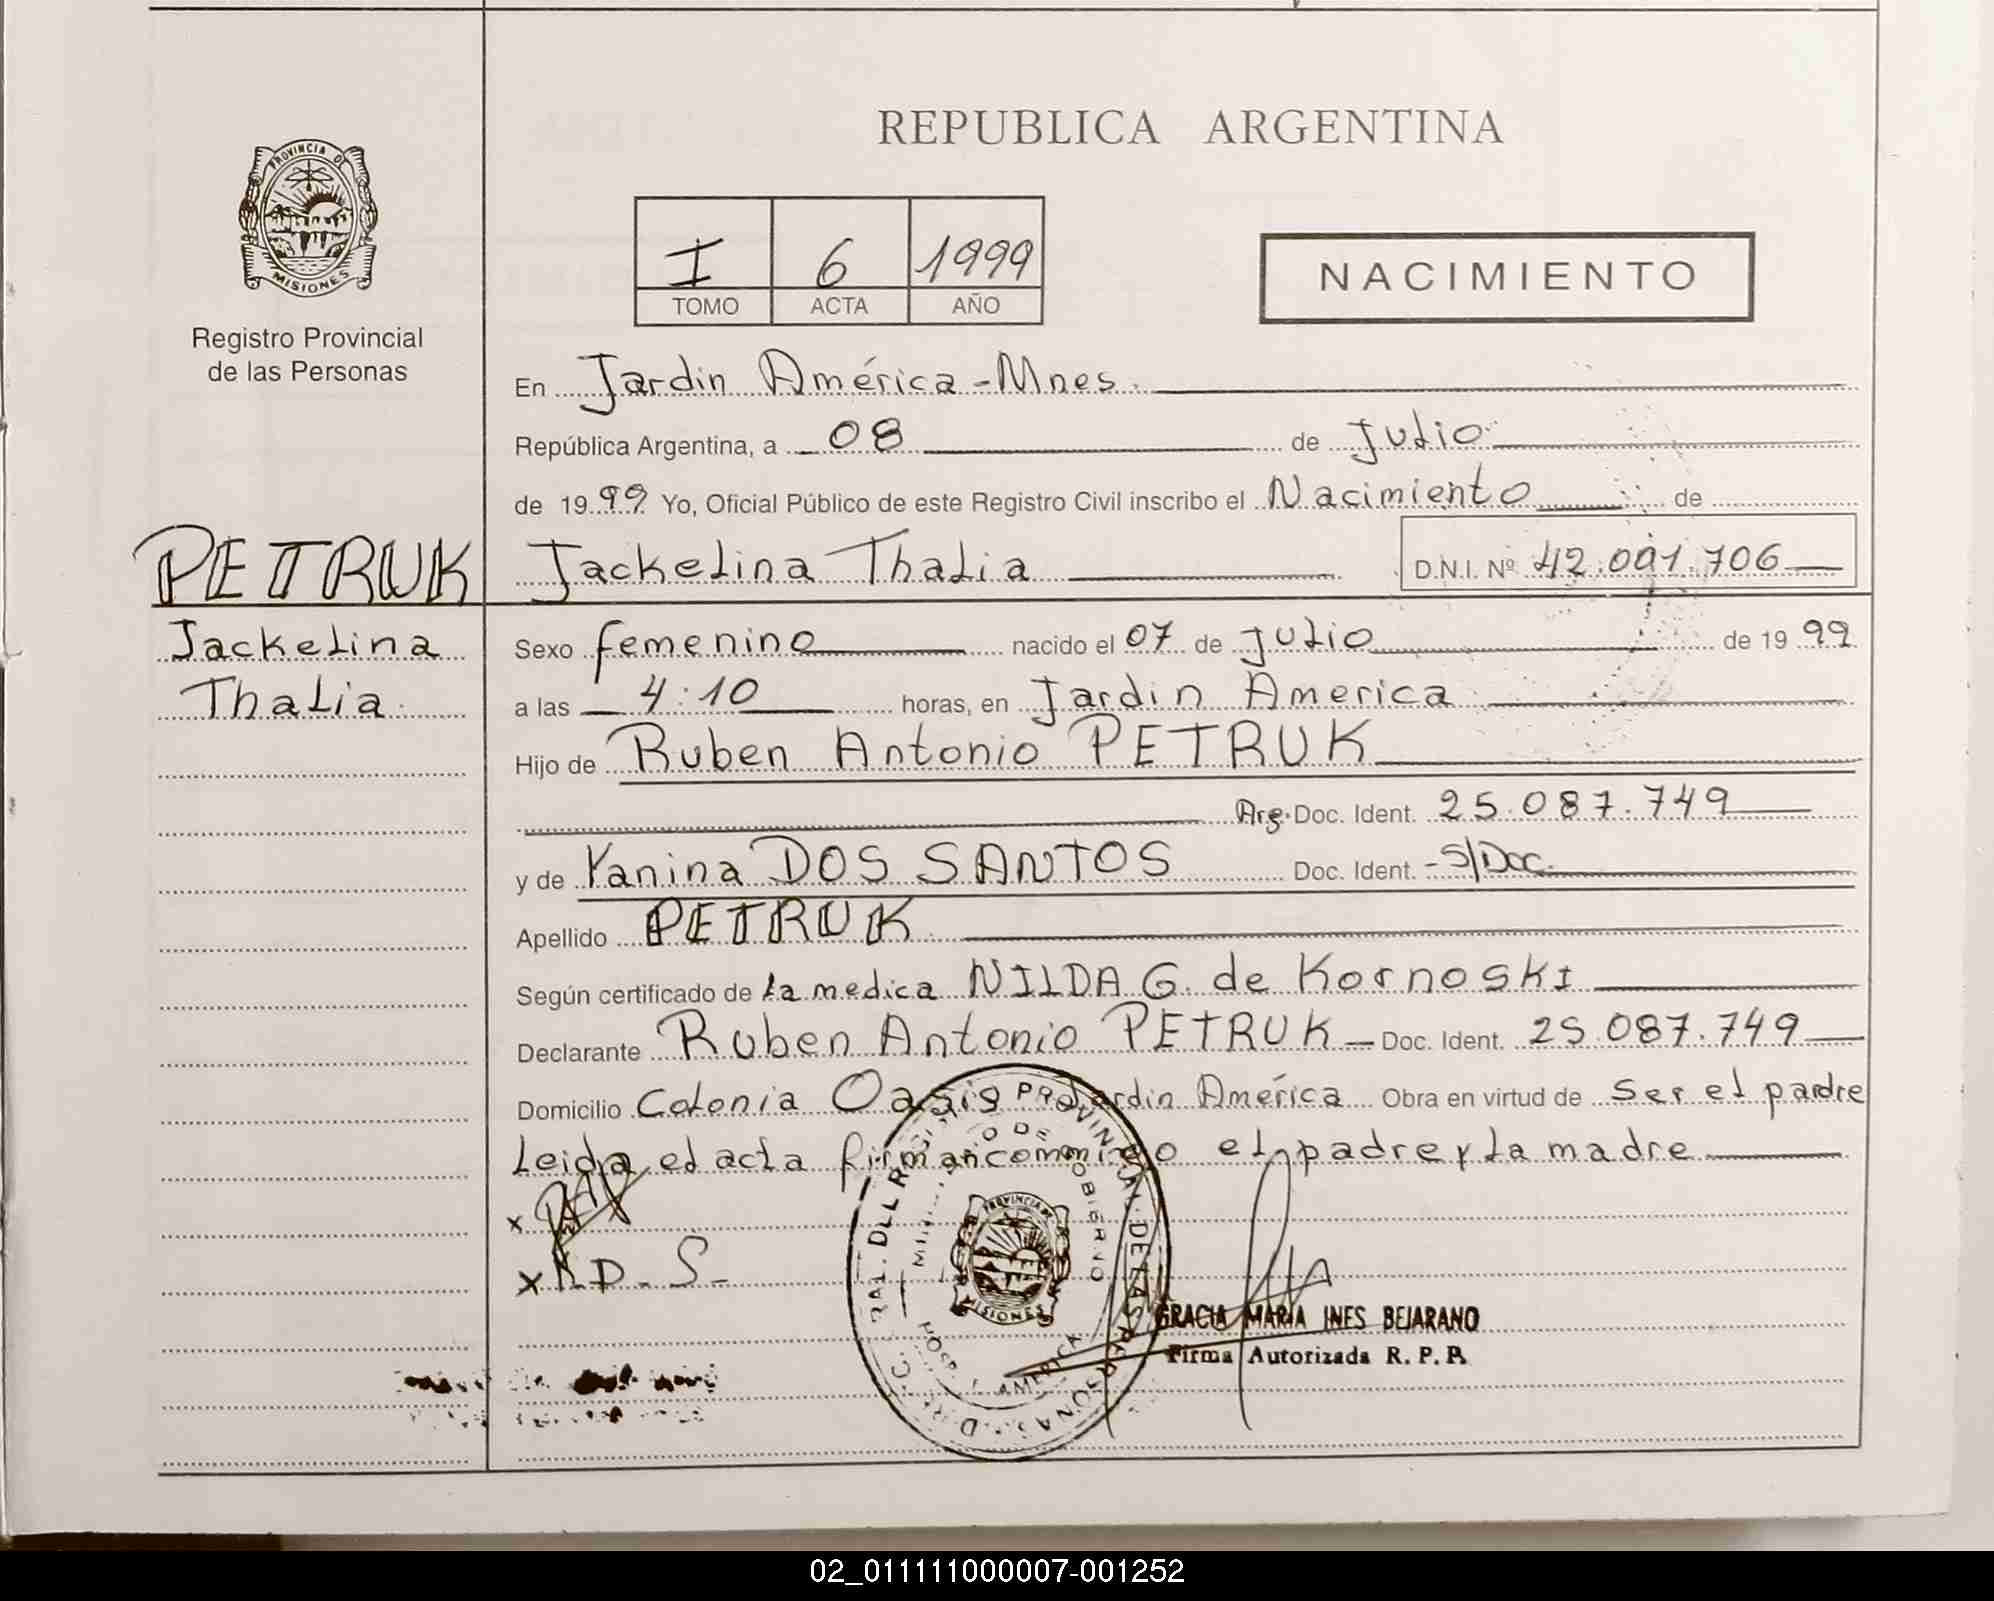 REPUBLICA ARGENTINA
PROVINCIA DE
MISIONES
Registro Provincial
de las Personas
I 6 1999
TOMO ACTA AÑO
NACIMIENTO
En Jardin América - Mnes.
República Argentina, a 08 de Julio
de 1999 Yo, Oficial Público de este Registro Civil inscribo el Nacimiento de
PETRUK
Jackelina Thalia D.N.I. Nº 42.091.706
Jackelina
Thalia
Sexo femenino nacido el 07 de julio de 1999
a las 4:10 horas, en Jardin America
Hijo de Ruben Antonio PETRUK
Arg. Doc. Ident. 25.087.749
y de Yanina DOS SANTOS Doc. Ident. - S/Doc.
Apellido PETRUK
Según certificado de la medica NILDA G. de Kornoski
Declarante Ruben Antonio PETRUK Doc. Ident. 25.087.749
Domicilio Colonia Oasis Jardin América Obra en virtud de ser el padre
Leida el acta firman conmigo el padre y la madre
x
x D. S.
PROVINCIAL DE LAS PERSONAS
MINISTERIO DE GOBIERNO
PROVINCIA DE
MISIONES
HOSP. AMERICA
GRACIA MARIA INES BEJARANO
Firma Autorizada R. P. P.
02_011111000007-001252